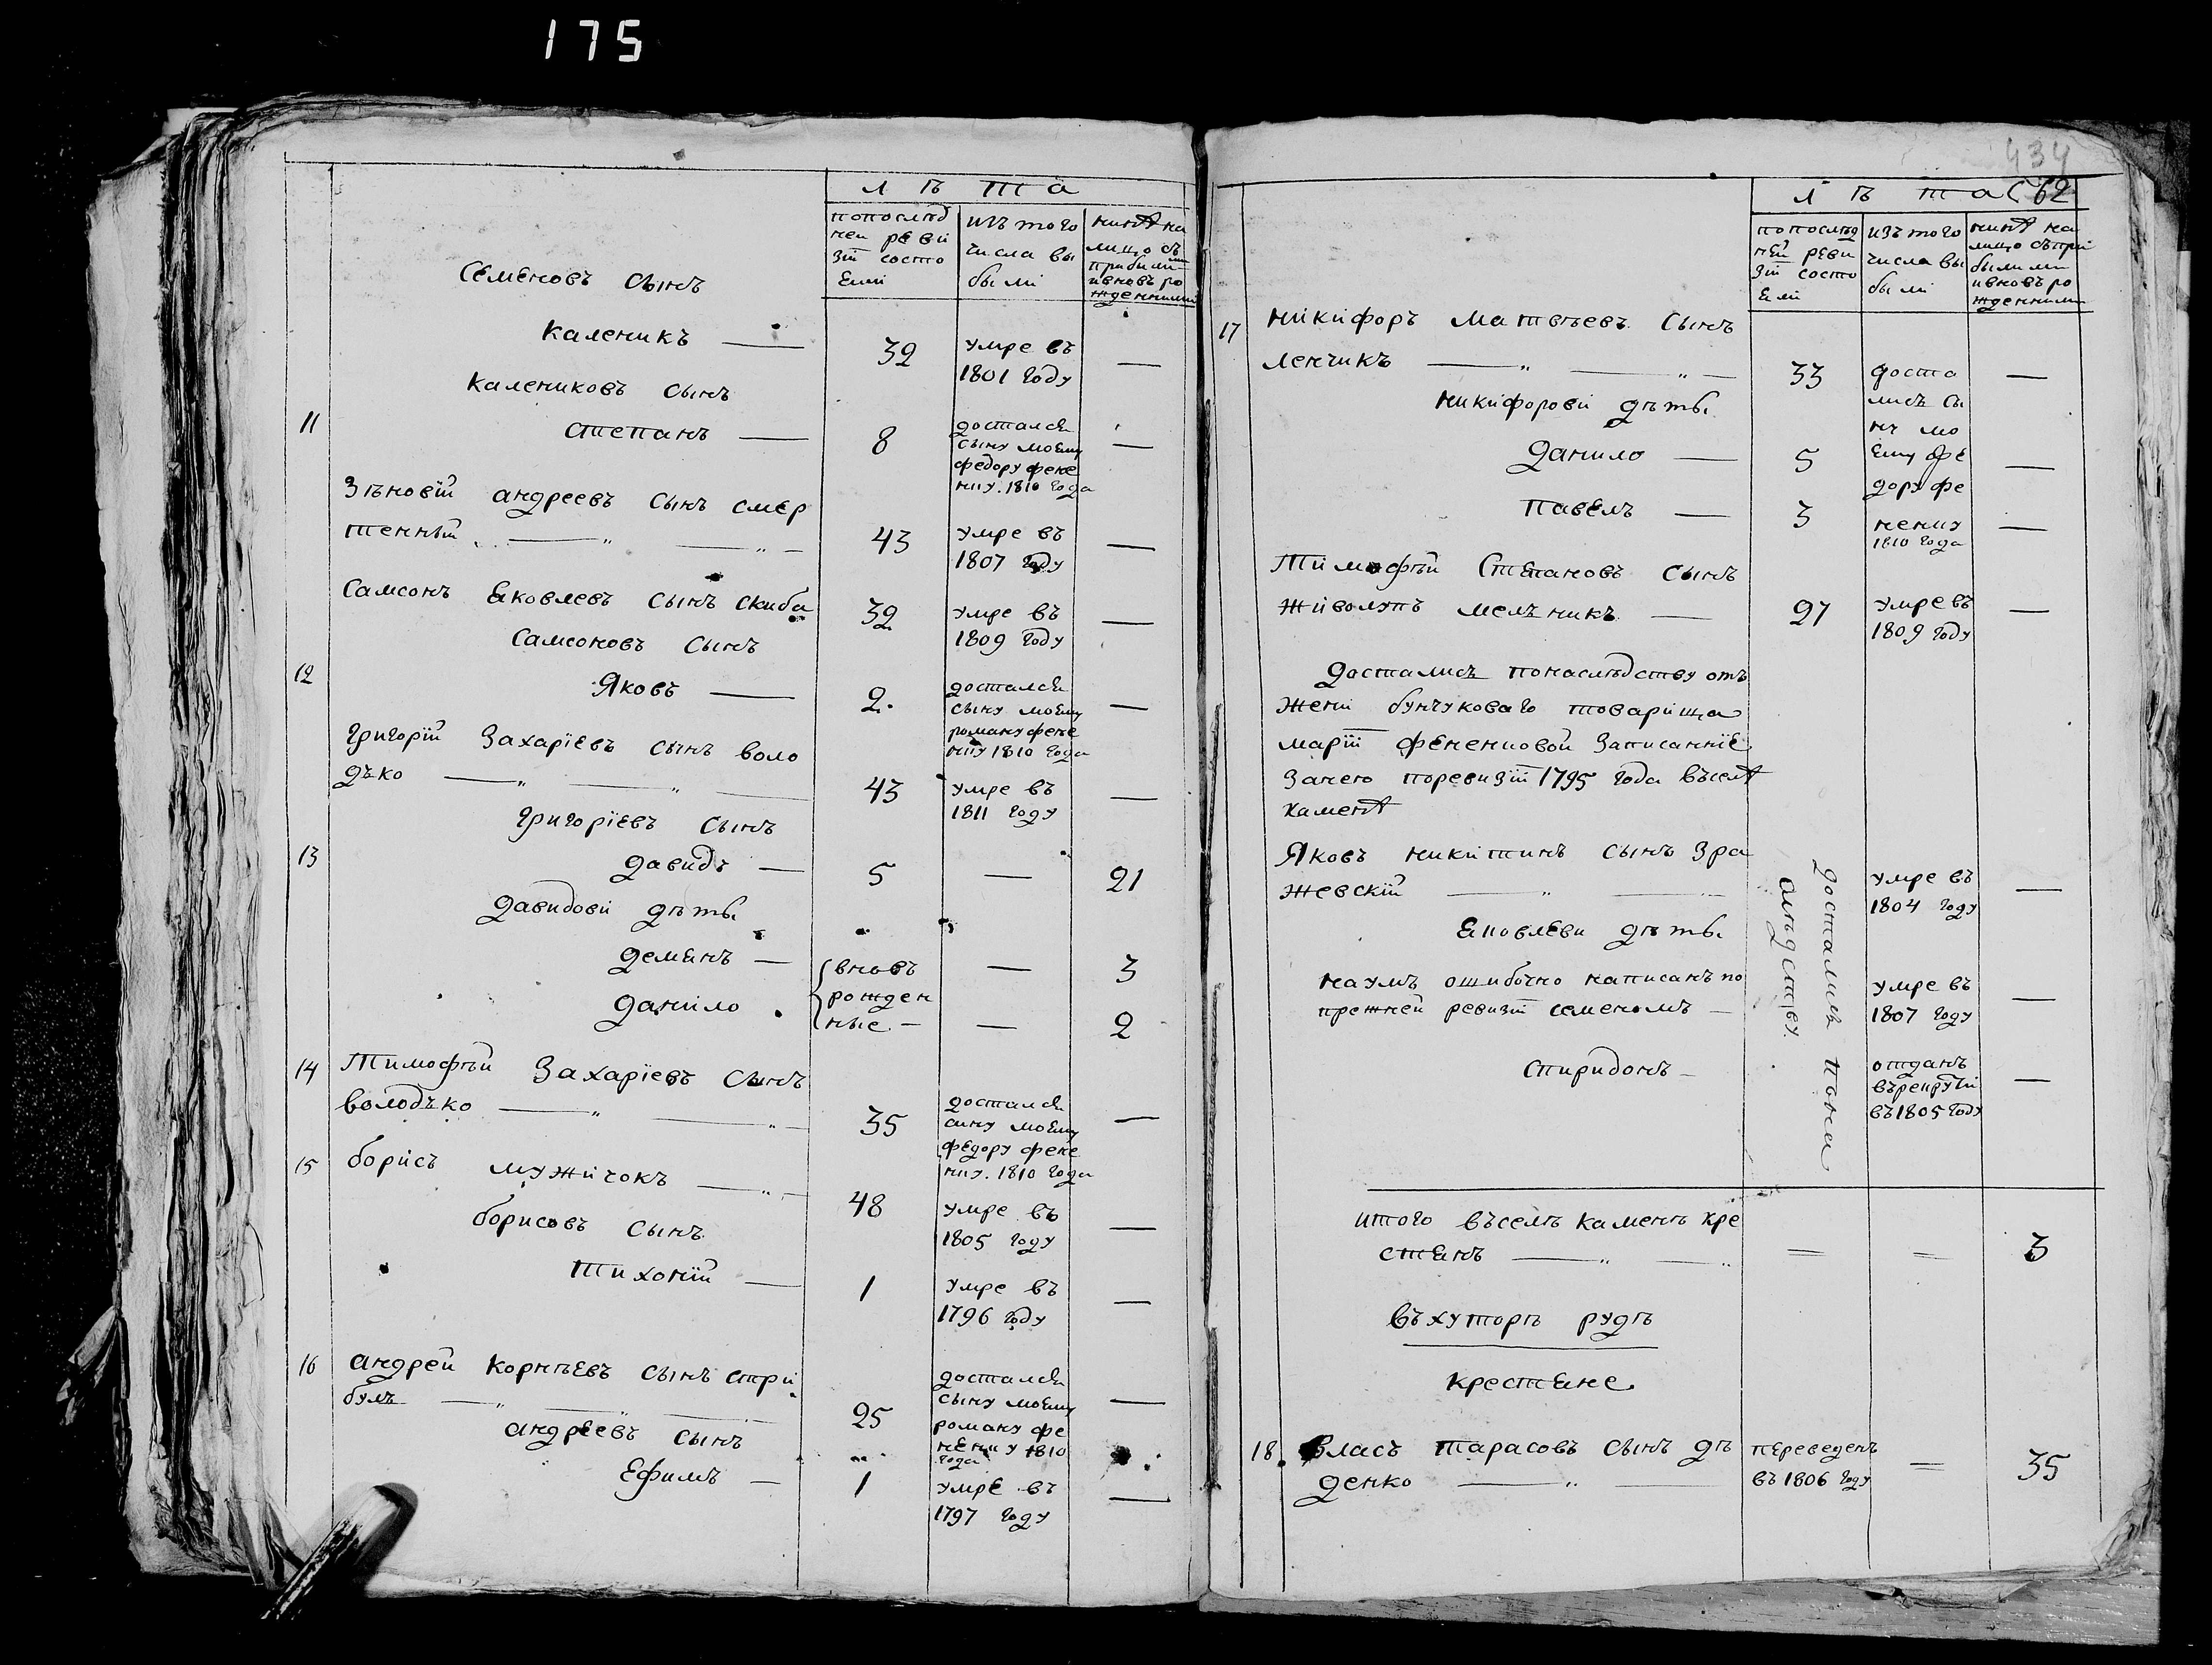 175
л ѣ та
попослѣд
ней реви
зіи состо
яли
изъ того
числа вы
были
нинѣ на
лицо съ
прибили
ивновь ро
жденними
Семеновъ сынъ
Каленикъ —
32
умре въ
1801 году
—
Калениковъ сынъ
11
Степанъ —
8
достался
сыну моему
федору фене
нку. 1810 года
—
Зѣновій андреевъ сынъ смер
тенній — „ — „ —
43
умре въ
1807 году
—
Самсонъ Яковлевъ сынъ скиба
32
умре въ
1809 году
—
Самсоновъ сынъ
12
Яковъ —
2.
достался
сыну моему
роману фене
нку 1810 года
—
Григорій Захаріевъ сынъ воло
дько — „ — „ —
43
умре въ
1811 году
—
Григоріевъ сынъ
13
давидъ —
5
—
21
давидови дѣты
демянъ —
вновь
рожден
ные —
—
3
данило
—
2
14
Тимофѣй Захаріевъ сынъ
володько — „ — „ —
35
достался
сину моему
федору фене
нку. 1810 года
—
15
борисъ мужичокъ — „ —
48
умре въ
1805 году
—
борисовъ сынъ
Тихоній —
1
умре въ
1796 году
—
16
андрей корнѣевъ сынъ стри
булъ — „ — „ — „ —
25
достался
сыну моему
роману фе
ненку 1810
года
—
андреевъ сынъ
Ефимъ —
1
умре въ
1797 году
—
434
62
л ѣ та
попослѣд
ней реви
зіи состо
яли
изъ того
числа вы
были
нинѣ на
лицо съпри
былими
ивновь ро
жденними
17
никифоръ матвѣевъ сынъ
ленчикъ — „ — „ —
33
доста
лись сы
ну мо
ему фе
дору фе
ненку
1810 года
—
никифорови дѣты
данило —
5
—
павелъ —
3
—
Тимофѣй Степановъ сынъ
живолупъ мельникъ —
27
умре въ
1809 году
—
достались понаслѣдству отъ
жени бунчуковаго товарища
маріи фененковой записанніе
занею поревизіи 1795 года въселѣ
каменѣ
Яковъ никитинъ сынъ зра
жевскій — „ — „ —
достались пона
слѣдству.
умре въ
1804 году
—
Яковлеви дѣты
наумъ ошибочно написанъ по
прежней ревизіи семеномъ —
умре въ
1807 году
—
спиридонъ —
отданъ
върекрути
въ 1805 году
—
итого въселѣ каменѣ кре
стянъ — „ — „
=
=
3
въхуторѣ рудѣ
крестяне
18.
власъ тарасовъ сынъ дѣ
денко — „ —
переведенъ
въ 1806 году
=
35